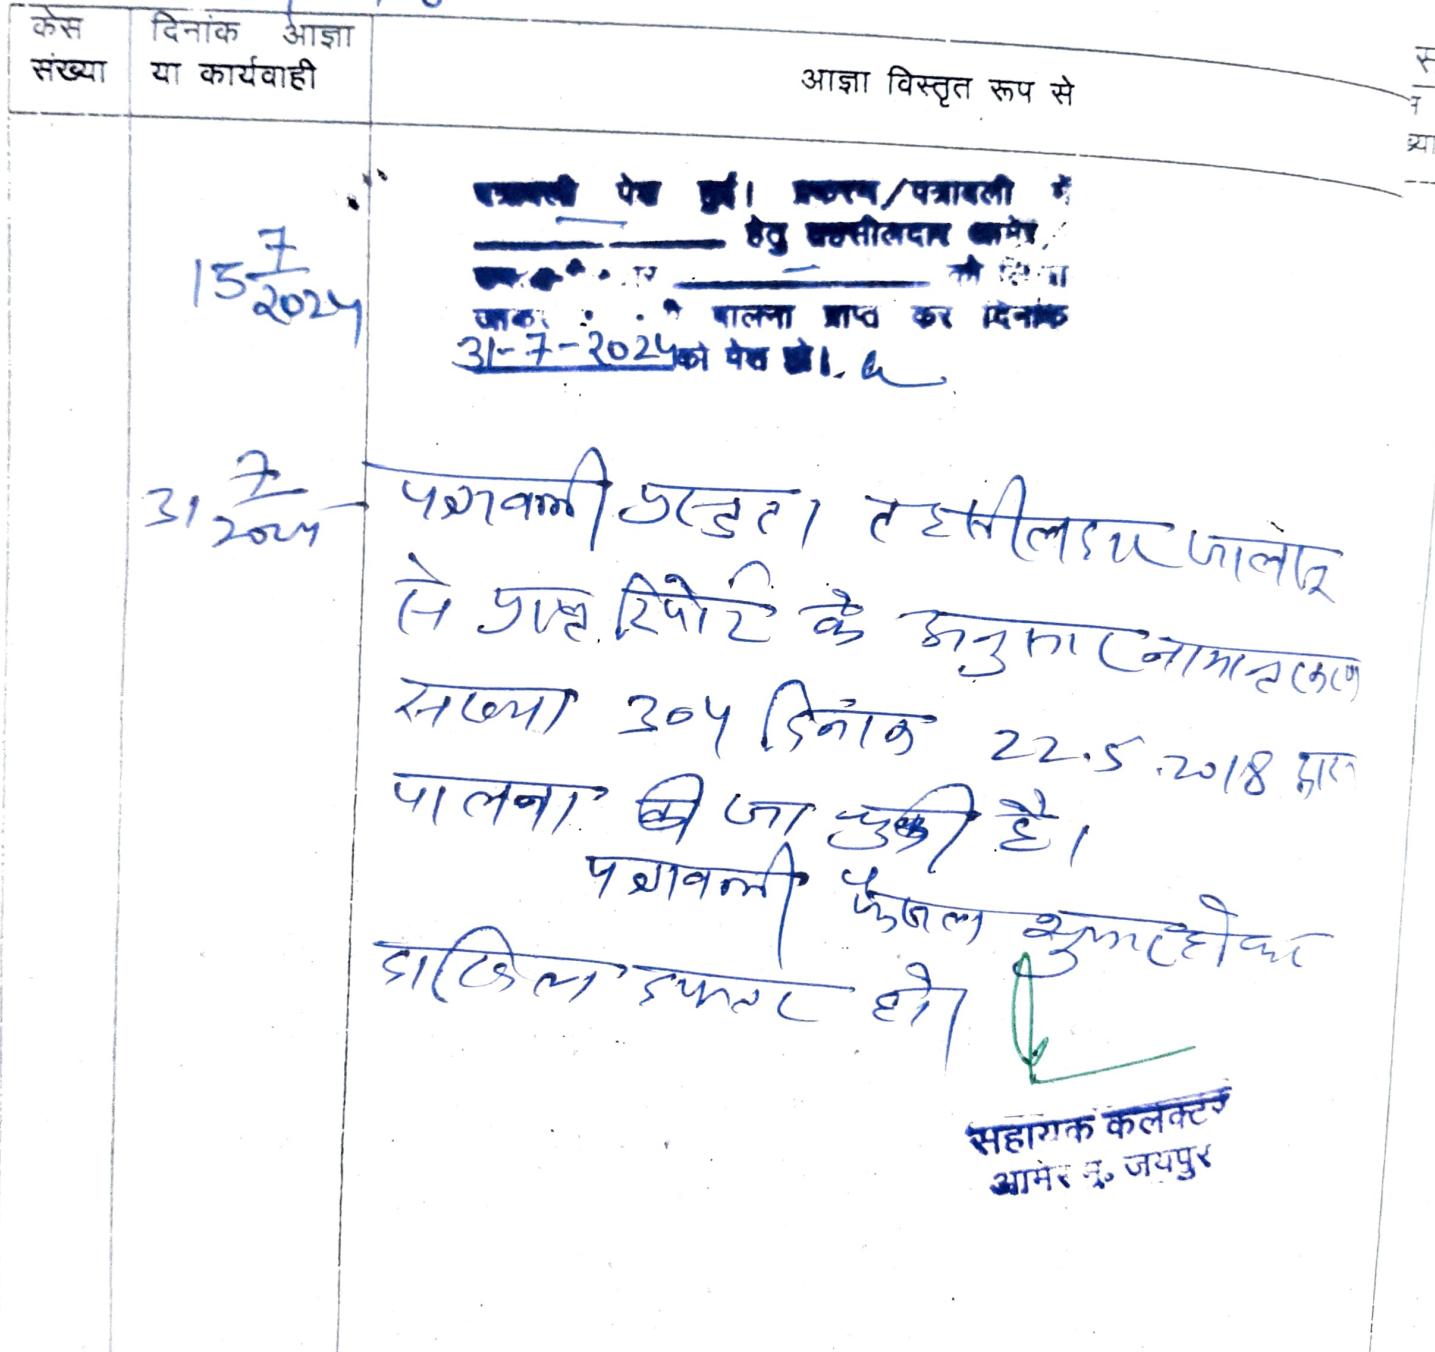 केस
संख्या
दिनांक आज्ञा
या कार्यवाही
आज्ञा विस्तृत रूप से
15 7/2024
पत्रावली पेश हुई। प्रकरण/पत्रावली में
हेतु तहसीलदार आमेर
को लिखा
पालना प्राप्त कर दिनांक
31-7-2024 को पेश हो।
31 7/2024
पत्रावली प्रस्तुत। तहसीलदार जालोर
से प्राप्त रिपोर्ट के अनुसार नामान्तरकरण
संख्या 304 दिनांक 22.5.2018 द्वारा
पालना की जा चुकी है।
पत्रावली फैसल शुमार होकर
दाखिल दफ्तर हो।
सहायक कलक्टर
आमेर मु. जयपुर